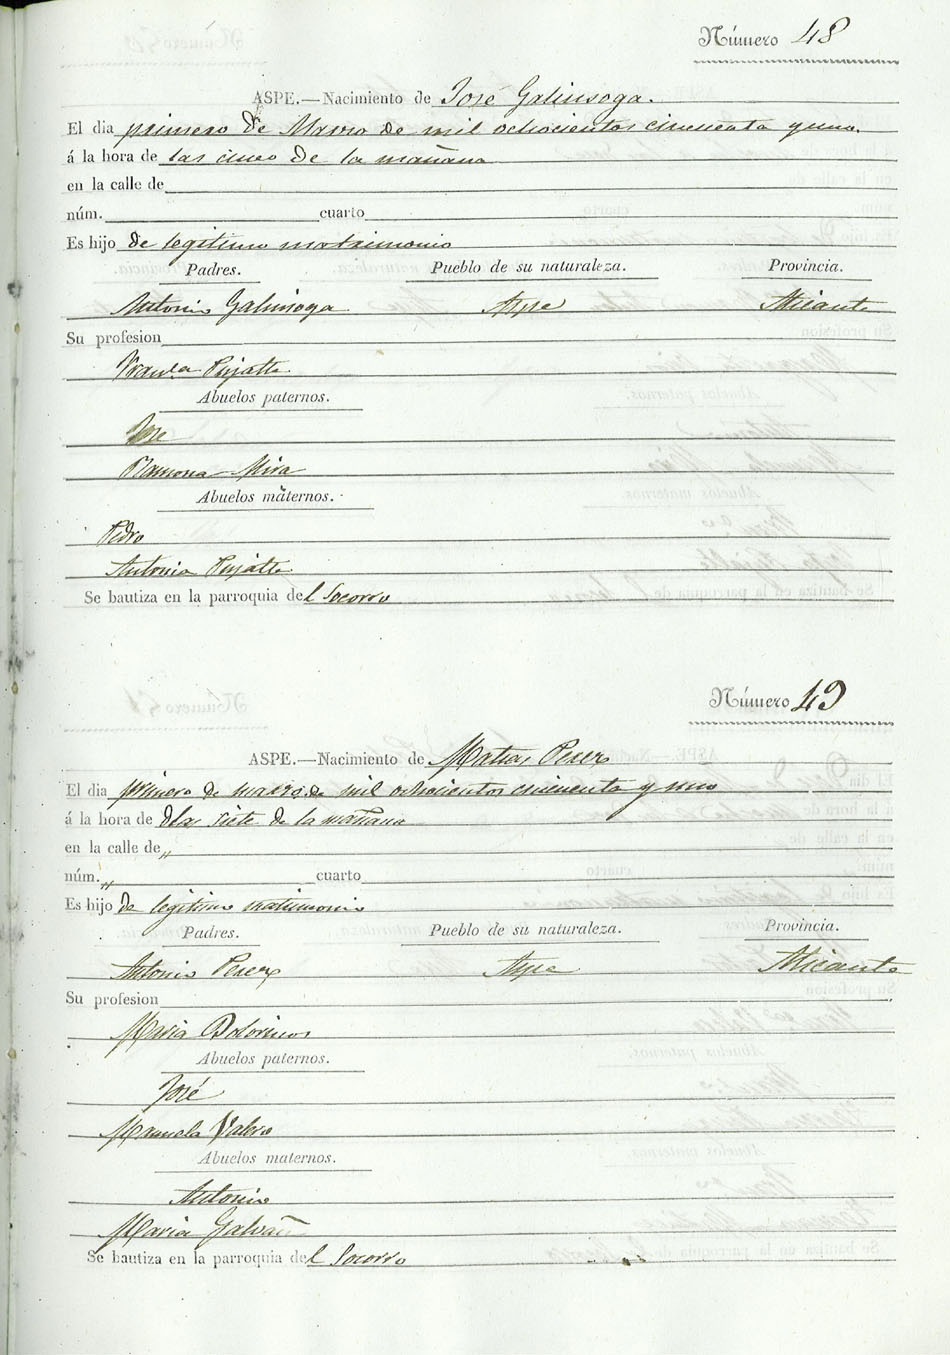 Número 48
ASPE.—Nacimiento de José Galinsoga.
El dia primero de Marzo de mil ochocientos cincuenta y uno.
á la hora de las cinco de la mañana
en la calle de
núm. cuarto
Es hijo de legitimo matrimonio
Padres. Pueblo de su naturaleza. Provincia.
Antonio Galinsoga Aspe Alicante
Su profesion
Vraula Pujalte
Abuelos paternos.
José
Ramona Mira
Abuelos maternos.
Pedro
Antonia Pujalte
Se bautiza en la parroquia del Socorro
Número 49
ASPE.—Nacimiento de Matias Perez
El dia primero de marzo de mil ochocientos cincuenta y uno
á la hora de dlas siete de la mañana
en la calle de "
núm. " cuarto
Es hijo de legitimo matrimonio
Padres. Pueblo de su naturaleza. Provincia.
Antonio Perez Aspe Alicante
Su profesion
Maria Botorinos
Abuelos paternos.
José
Manuela Valero
Abuelos maternos.
Antonio
Maria Galvañ
Se bautiza en la parroquia del Socorro